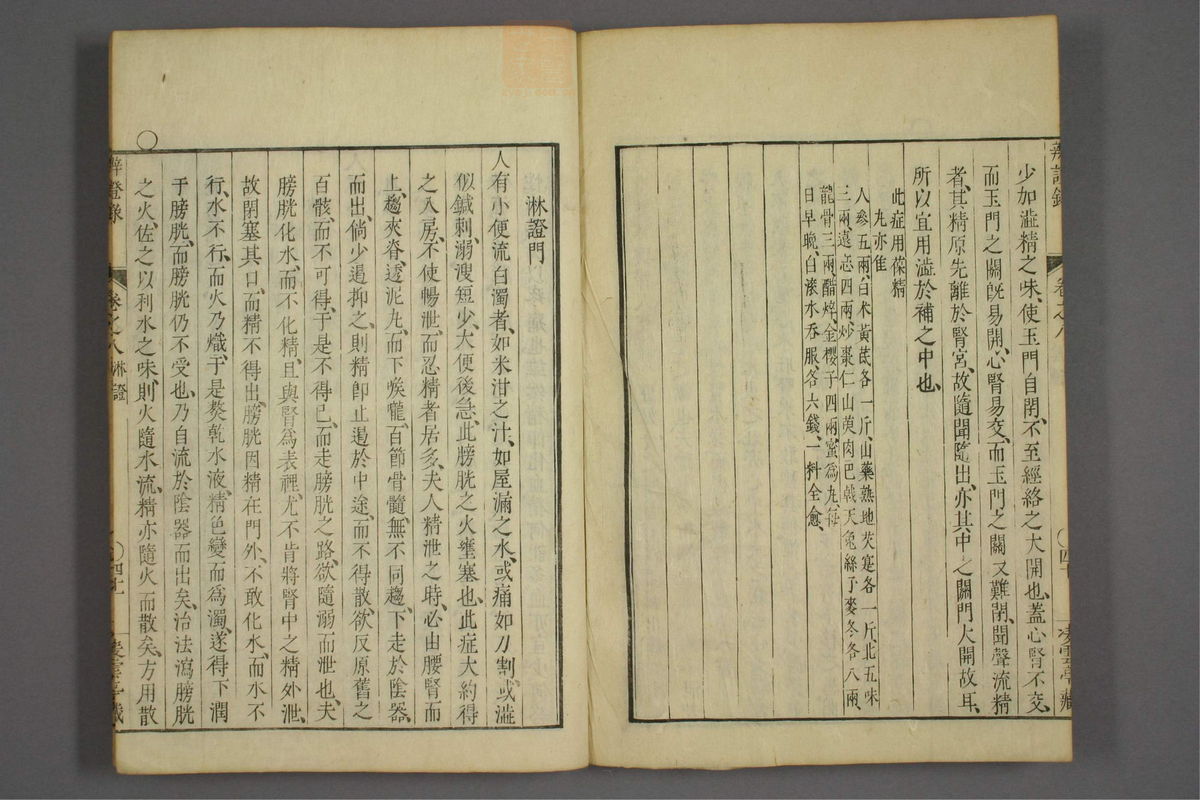 少加澁精之味、使玉門自閉、不至經絡之大開也、蓋心腎不交、
而玉門之關旣易開、心腎易交、而玉門之關又難閉、聞聲流精
者、其精原先離於腎宮、故隨聞隨出、亦其中之關門大開故耳、
所以宜用澁於補之中也、
此症用葆精
丸亦隹
人參五兩、白术黃芪各一斤、山藥熟地芡寔各一斤、北五味
三兩、遠志四兩炒棗仁山萸肉巴戟天兔絲子麥冬各八兩、
龍骨三兩、醋焠、金櫻子四兩蜜爲丸每
日早晚、白滚水吞服、各六錢、一料全愈、
淋證門
人有小便流白濁者、如米泔之汁、如屋漏之水、或痛如刀割、或澁
似鍼刺、溺溲短少、大便後急、此膀胱之火壅塞也、此症大約得
之入房、不使暢泄、而忍精者居多、夫人精泄之時、必由腰腎而
上、趨夾脊、透泥丸、而下喉嚨、百節骨髓、無不同趨、下走於陰器、
而出、倘少遏抑之、則精卽止遏於中途、而不得散、欲反原舊之
百骸、而不可得、于是不得已、而走膀胱之路、欲隨溺而泄也、夫
膀胱化水、而不化精、且與腎爲表裡、尤不肯將腎中之精外泄、
故閉塞其口、而精不得出、膀胱因精在門外、不敢化水、而水不
行、水不行、而火乃熾、于是熬乾水液、精色變而爲濁、遂得下潤
于膀胱、而膀胱仍不受也、乃自流於陰器而出矣、治法瀉膀胱
之火、佐之以利水之味、則火隨水流、精亦隨火而散矣、方用散
辨證錄
卷之八
淋證